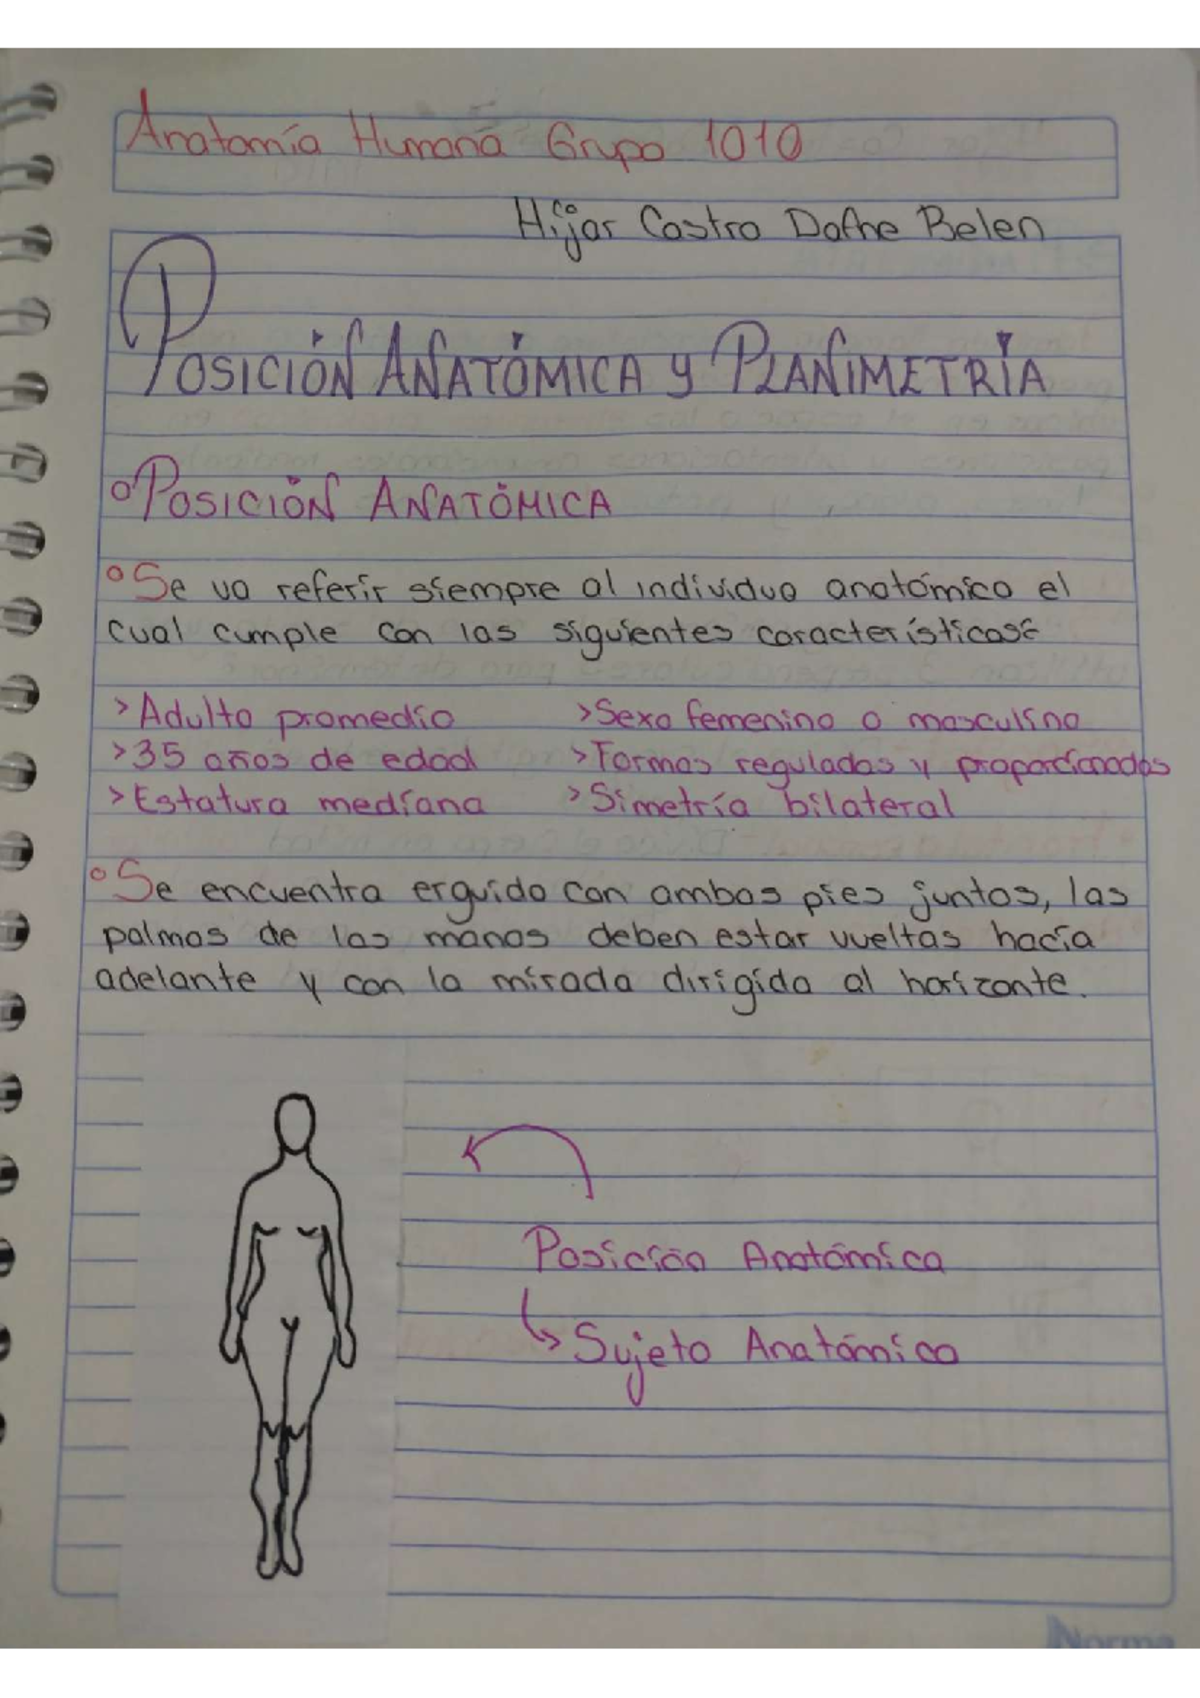 Anatomía Humana Grupo 1010
Híjar Castro Dafne Belen
POSICIÓN ANATÓMICA y PLANIMETRÍA
POSICIÓN ANATÓMICA
Se va referir siempre al individuo anatómico el
cual cumple con las siguientes características:
>Adulto promedio >Sexo femenino o masculino
>35 años de edad >Formas reguladas y proporcionadas
>Estatura mediana >Simetría bilateral
Se encuentra erguido con ambas pies juntos, las
palmas de las manos deben estar vueltas hacia
adelante y con la mirada dirigida al horizonte.
Posición Anatómica
Sujeto Anatómico
Norma